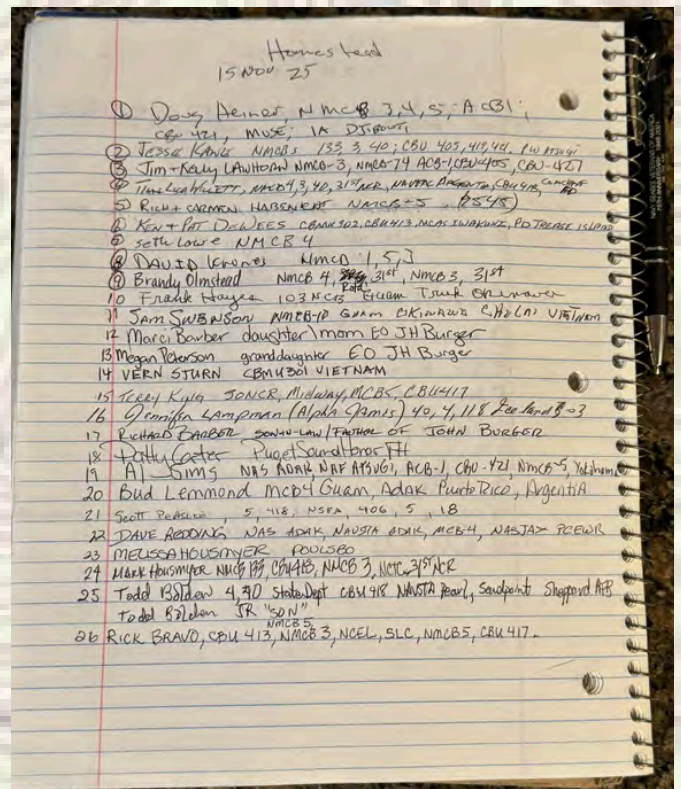 Homestead
15 NOV 25
① Doug Heiner, NMCB 3,4,5; ACB1;
CBU 421, MUSE; IA DJIBOUTI
② Jesse NMCBs 133, 3, 40; CBU 405,
③ Jim + Kelly LAWHORN NMCB-3, NMCB-74 ACB-1, CBU 405, CBU-421
④ NMCB 4, 3, 40, 31st NCR, ARGENTIA, CBU 418,
5) RICH + CARMEN NMCB-5
⑥ KEN + PAT DeWEES CBMU302, CBU413, MCAS IWAKUNI, PD TREASE ISLAND
⑥ seth Lowe NMCB 4
⑧ DAVID NMCB 1, 5, 3
⑨ Brandy Olmstead NMCB 4, Rota, 31st, NMCB 3, 31st
10 Frank Hayes 103 NCB Guam Truk
11 SAM SWENSON NMCB-10 GUAM OKINAWA CHULAI VIETNAM
12 Marci Barber daughter/mom EO JH Burger
13 Megan Peterson granddaughter EO JH Burger
14 VERN STURN CBMU301 VIETNAM
15 Terry King 30NCR, Midway, MCB5, CBU417
16 Jennifer LAMPMAN (Alpha Jamis) 40, 4, 118
17 RICHARD BARBER SON-IN-LAW/FATHER OF JOHN BURGER
18 Patty Puget Sound
19 Al Sims NAS ADAK, NAF ATSUGI, ACB-1, CBU-421, NMCB-5,
20 Bud Lemmond MCB4 Guam, Adak Puerto Rico, Argentia
21 Scott 5, 418, NSFA, 406, 5, 18
22 DAVE REDDING NAS ADAK, NAVSTA ADAK, MCB-4, NASJAX PCEWR
23 MELISSA HOUSMYER POULSBO
24 MARK HOUSMYER NMCB 133, CBU418, NMCB 3, NCTC, 31st NCR
25 Todd Bolden 4, 40 State Dept CBU 418 NAVSTA Pearl, Sandpoint Sheppard AFB
Todd Bolden JR "SON"
NMCB 5
26 RICK BRAVO, CBU 413, NMCB 3, NCEL, SLC, NMCB5, CBU 417.